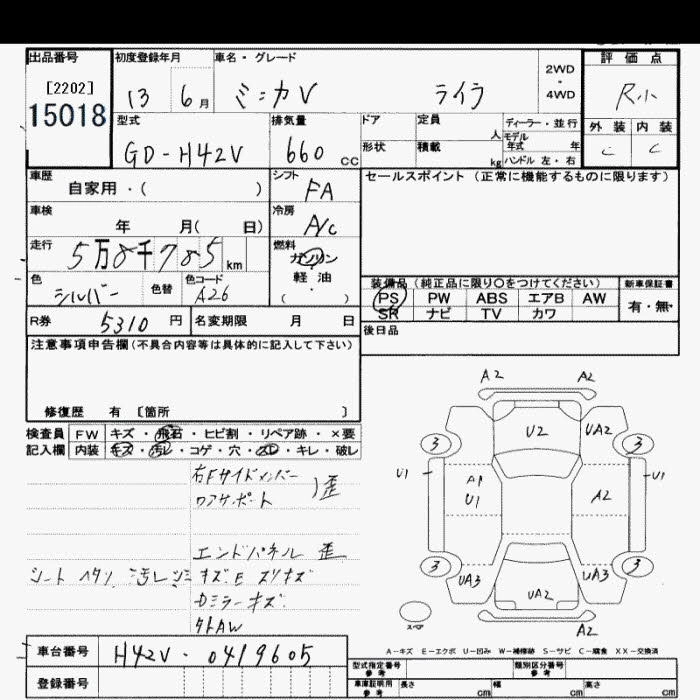 出品番号
[2202]
15018
初度登録年月
13 6月
車名・グレード
ミニカV ライラ
2WD
・
4WD
評価点
R小
外装 内装
C C
型式
GD-H42V
排気量
660 CC
ドア
形状
定員 人
積載 kg
ディーラー・並行
モデル年式 年
ハンドル 左・右
車歴
自家用・( )
シフト
FA
セールスポイント(正常に機能するものに限ります)
車検
年 月( 日)
冷房
A/C
走行
5万8千785km
燃料
ガソリン
軽・油
( )
色
シルバー
色替
色コード
A26
装備品(純正品に限り○をつけてください)
PS PW ABS エアB AW
SR ナビ TV カワ
新車保証書
有・無
R券 5310円
名変期限 月 日
後日品
注意事項申告欄(不具合内容等は具体的に記入して下さい)
修復歴 有 [箇所 ]
検査員 FW キズ・飛石・ヒビ割・リペア跡・×要
記入欄 内装 キズ・汚レ・コゲ・穴・スレ・キレ・破レ
右Fサイドメンバー
コアサポート )歪
エンドパネル 歪
シート ヘタリ 汚レシミ キズE スリキズ
Dミラーキズ
外AW
A2 A2
U2 UA2
3 3
U1 A1 U1
U1 A2
3 3
UA3 UA3
UA2
A2
スペア
A-キズ E-エクボ U-凹み W-補修跡 S-サビ C-腐食 XX-交換済
車台番号 H42V-0419605
登録番号
型式指定番号 参考
類別区分番号 参考
車庫証明用 参考 長さ cm 幅 cm 高さ cm